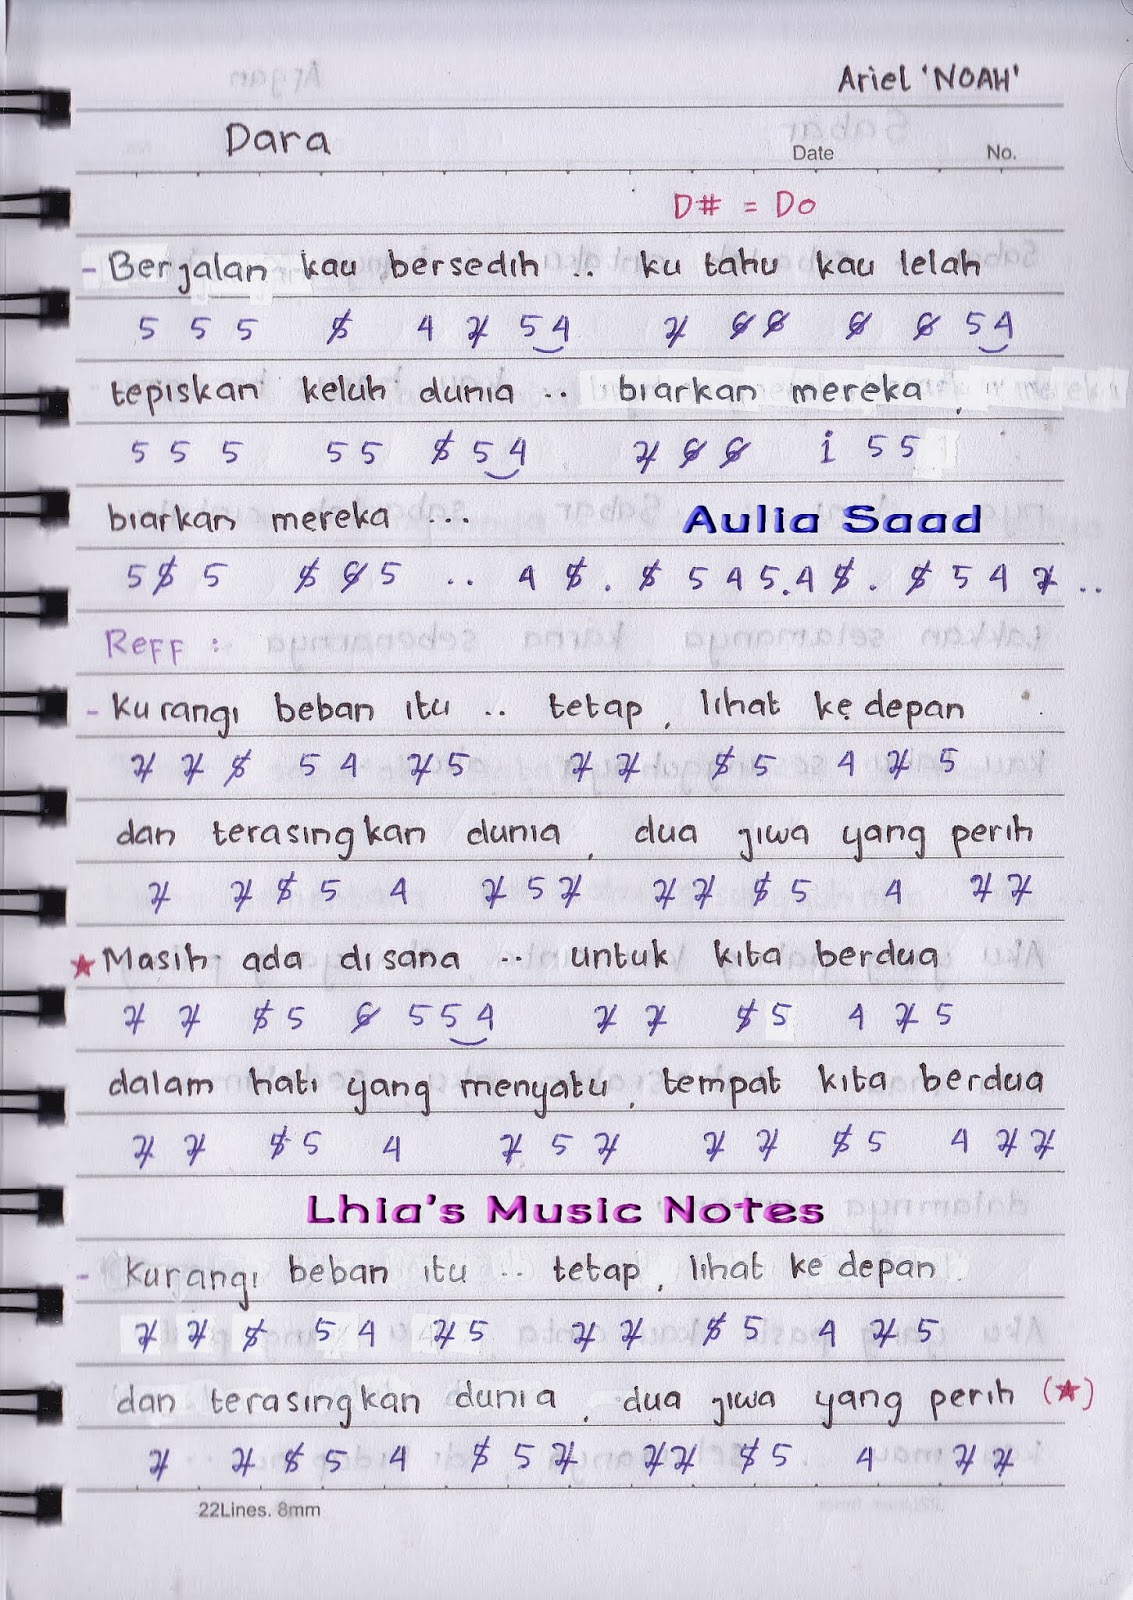 Ariel 'NOAH'
Dara
Date No.
D# = Do
- Berjalan kau bersedih .. ku tahu kau lelah
5 5 5 5̸ 4 2̸ 5 4 2̸ 6̸ 6̸ 6̸ 6̸ 5 4
tepiskan keluh dunia .. biarkan mereka,
5 5 5 5 5 5̸ 5 4 2̸ 6̸ 6̸ i 5 5
biarkan mereka ... Aulia Saad
5 5̸ 5 5̸ 6̸ 5 .. 4 5̸ . 5̸ 5 4 5 . 4 5̸ . 5̸ 5 4 2̸ ..
Reff :
- Kurangi beban itu .. tetap, lihat kedepan
2̸ 2̸ 5̸ 5 4 2̸ 5 2̸ 2̸ 5̸ 5 4 2̸ 5
dan terasingkan dunia, dua jiwa yang perih
2̸ 2̸ 5̸ 5 4 2̸ 5 2̸ 2̸ 2̸ 5̸ 5 4 2̸ 2̸
★ Masih ada disana .. untuk kita berdua
2̸ 2̸ 5̸ 5 6̸ 5 5 4 2̸ 2̸ 5̸ 5 4 2̸ 5
dalam hati yang menyatu, tempat kita berdua
2̸ 2̸ 5̸ 5 4 2̸ 5 2̸ 2̸ 2̸ 5̸ 5 4 2̸ 2̸
Lhia's Music Notes
- Kurangi beban itu .. tetap, lihat kedepan
2̸ 2̸ 5̸ 5 4 2̸ 5 2̸ 2̸ 5̸ 5 4 2̸ 5
dan terasingkan dunia, dua jiwa yang perih (★)
2̸ 2̸ 5̸ 5 4 5̸ 5 2̸ 2̸ 2̸ 5̸ 5 4 2̸ 2̸
22Lines. 8mm